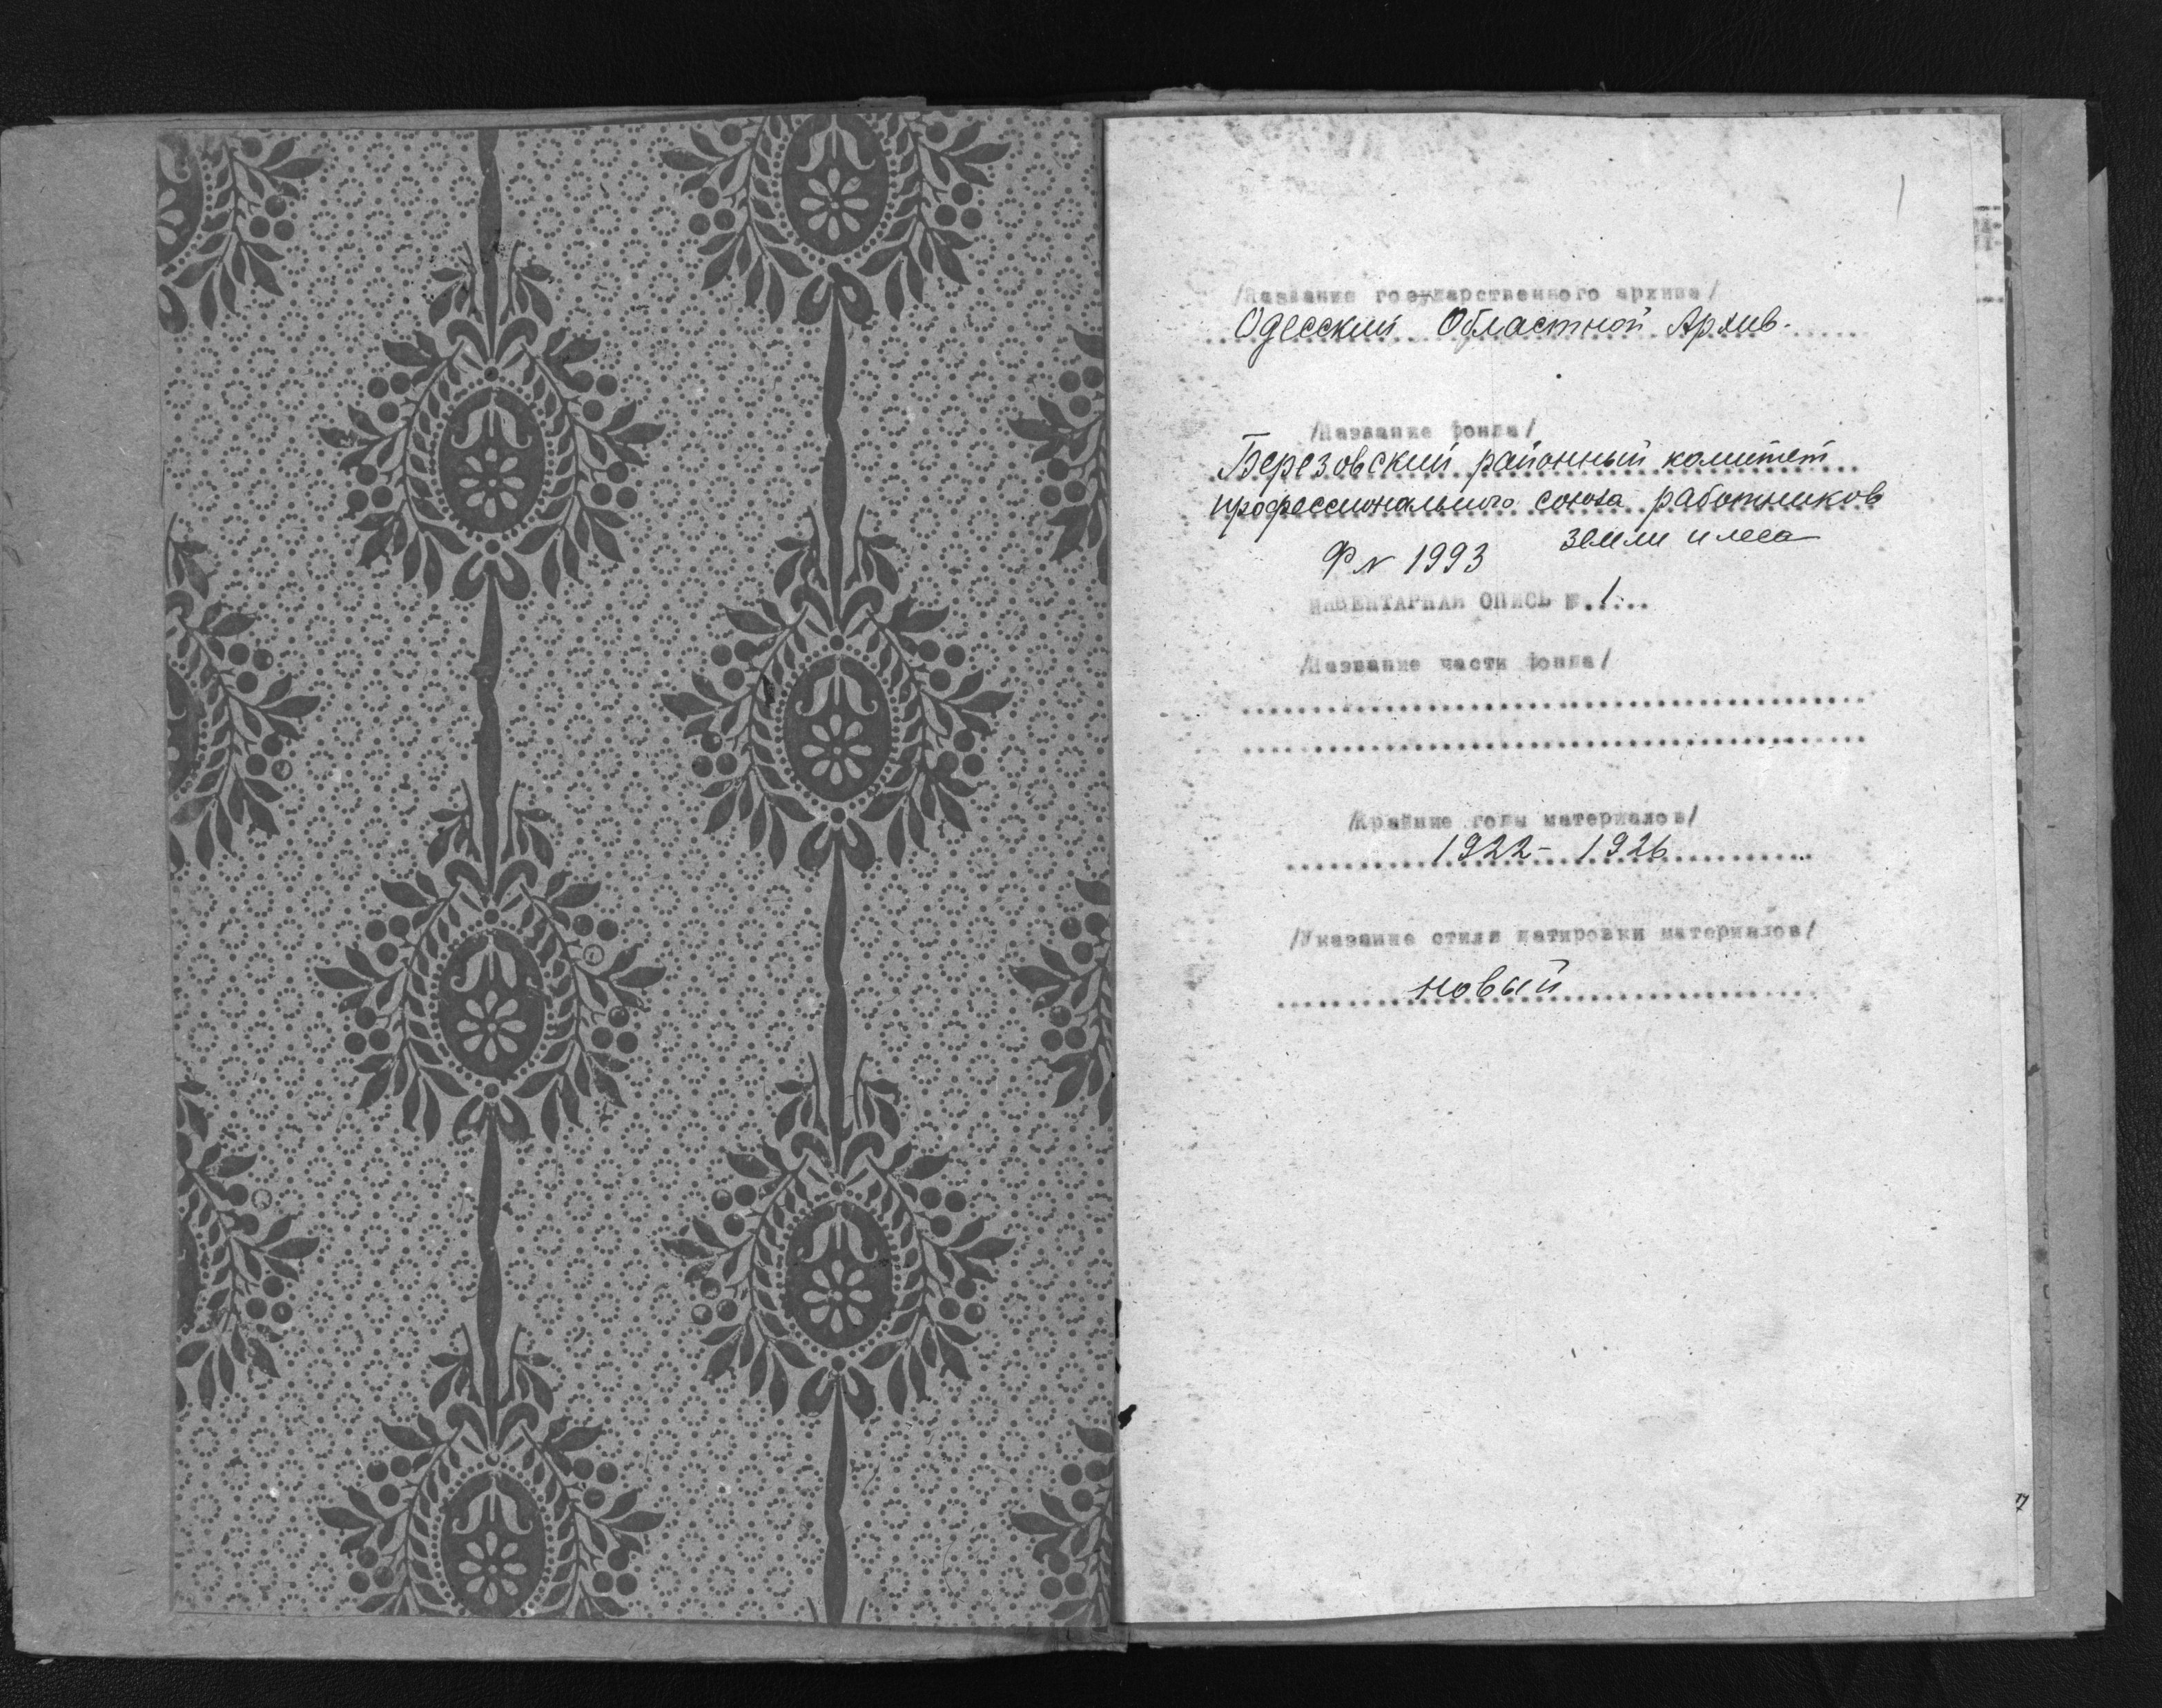 /Название государственного архива/
Одесский Областной Архив.
/Название фонда/
Березовский районный комитет
профессионального союза работников
земли и леса
Ф N 1993
ИНВЕНТАРНАЯ ОПИСЬ № 1
/Название части фонда/
/Крайние годы материалов/
1922 - 1926
/Указание стиля датировки материалов/
новый